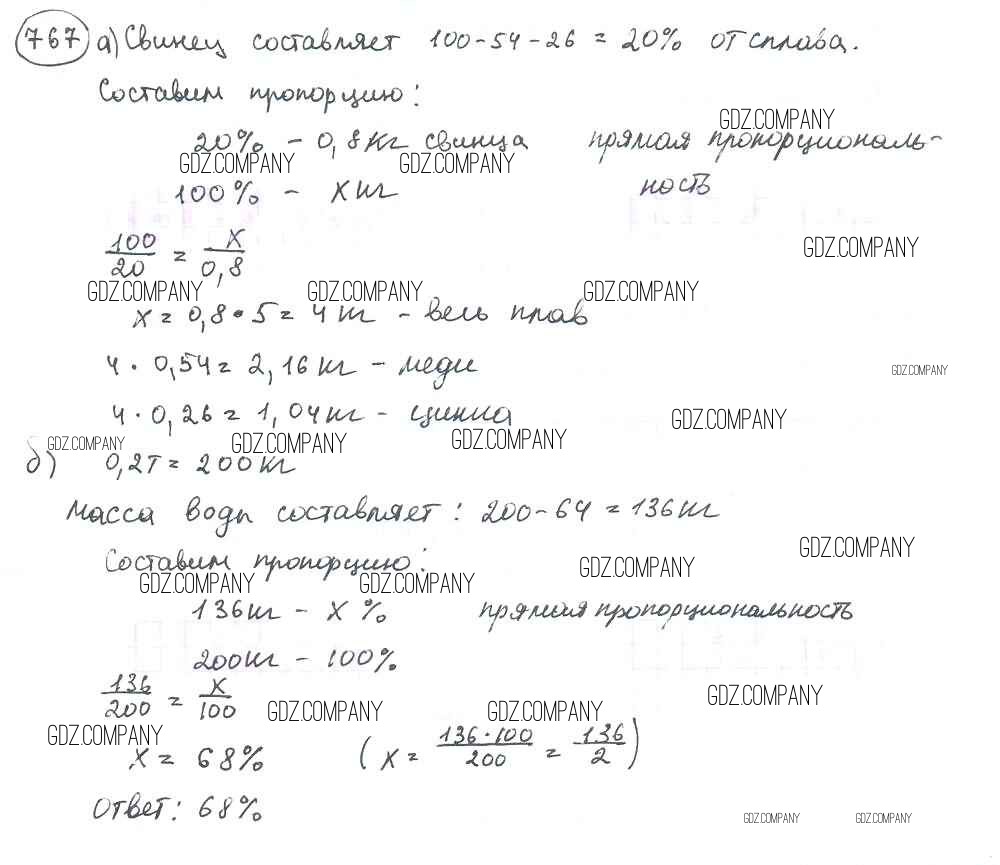 767 а) Свинец составляет 100-54-26 = 20% от сплава.
Составим пропорцию:
GDZ.COMPANY
20% - 0,8кг свинца прямая пропорциональ-
GDZ.COMPANY GDZ.COMPANY
100% - x кг ность
100/20 = x/0,8
GDZ.COMPANY
GDZ.COMPANY GDZ.COMPANY GDZ.COMPANY
x = 0,8 • 5 = 4 кг - весь плав
4 · 0,54 = 2,16 кг - меди
GDZ.COMPANY
4 · 0,26 = 1,04 кг - цинка
GDZ.COMPANY
GDZ.COMPANY GDZ.COMPANY GDZ.COMPANY
б) 0,2т = 200 кг
Масса воды составляет: 200-64 = 136 кг
GDZ.COMPANY
Составим пропорцию:
GDZ.COMPANY
GDZ.COMPANY GDZ.COMPANY
136 кг - x % прямая пропорциональность
200 кг - 100%
136/200 = x/100
GDZ.COMPANY
GDZ.COMPANY GDZ.COMPANY
GDZ.COMPANY
x = 68% (x = 136·100/200 = 136/2)
Ответ: 68%
GDZ.COMPANY GDZ.COMPANY